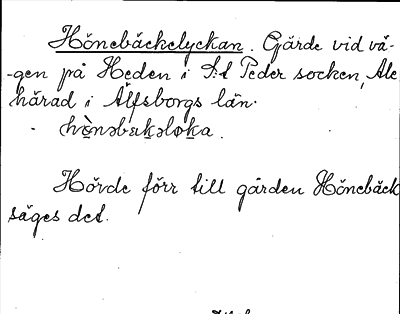 Hönebäckelyckan. Gärde vid vä-
-gen på Heden i S:t Peder socken, Ale
härad i Älfsborgs län.
Hörde förr till gården Hönebäck
säges det.